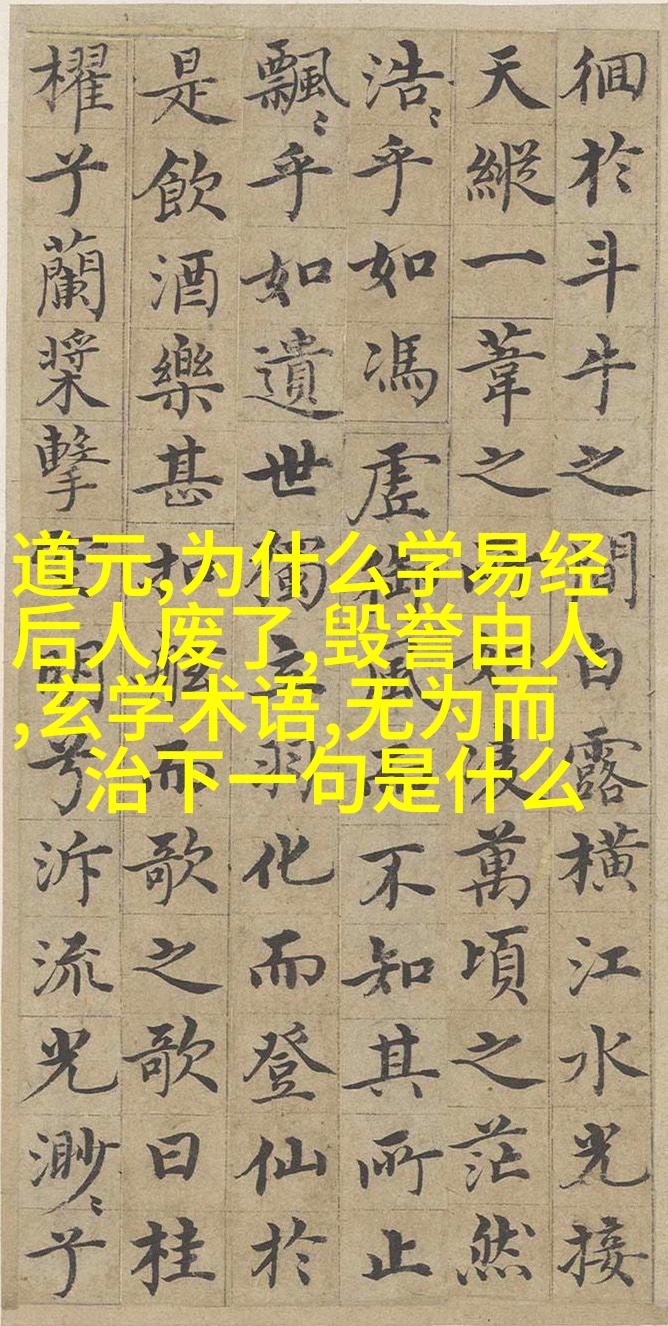 徊於斗牛之間白露橫江水光接
天縱一葦之所如淩萬頃之茫然
浩〻乎如馮虛御風而不知其所止
飄〻乎如遺世獨立羽化而登仙於
是飲酒樂甚扣舷而歌之歌曰桂
櫂兮蘭槳擊空明兮泝流光渺〻兮
道元,为什么学易经
后人废了,毁誉由人
,玄学术语,无为而
治下一句是什么